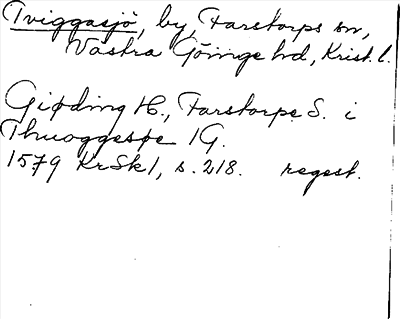 Tviggasjö, by, Farstorps sn,
Västra Göinge hd, Krist. l.
Giøding H., Farstorps S. i
Thuoggesøe 1G.
1579 KrSk 1, s. 218. regest.